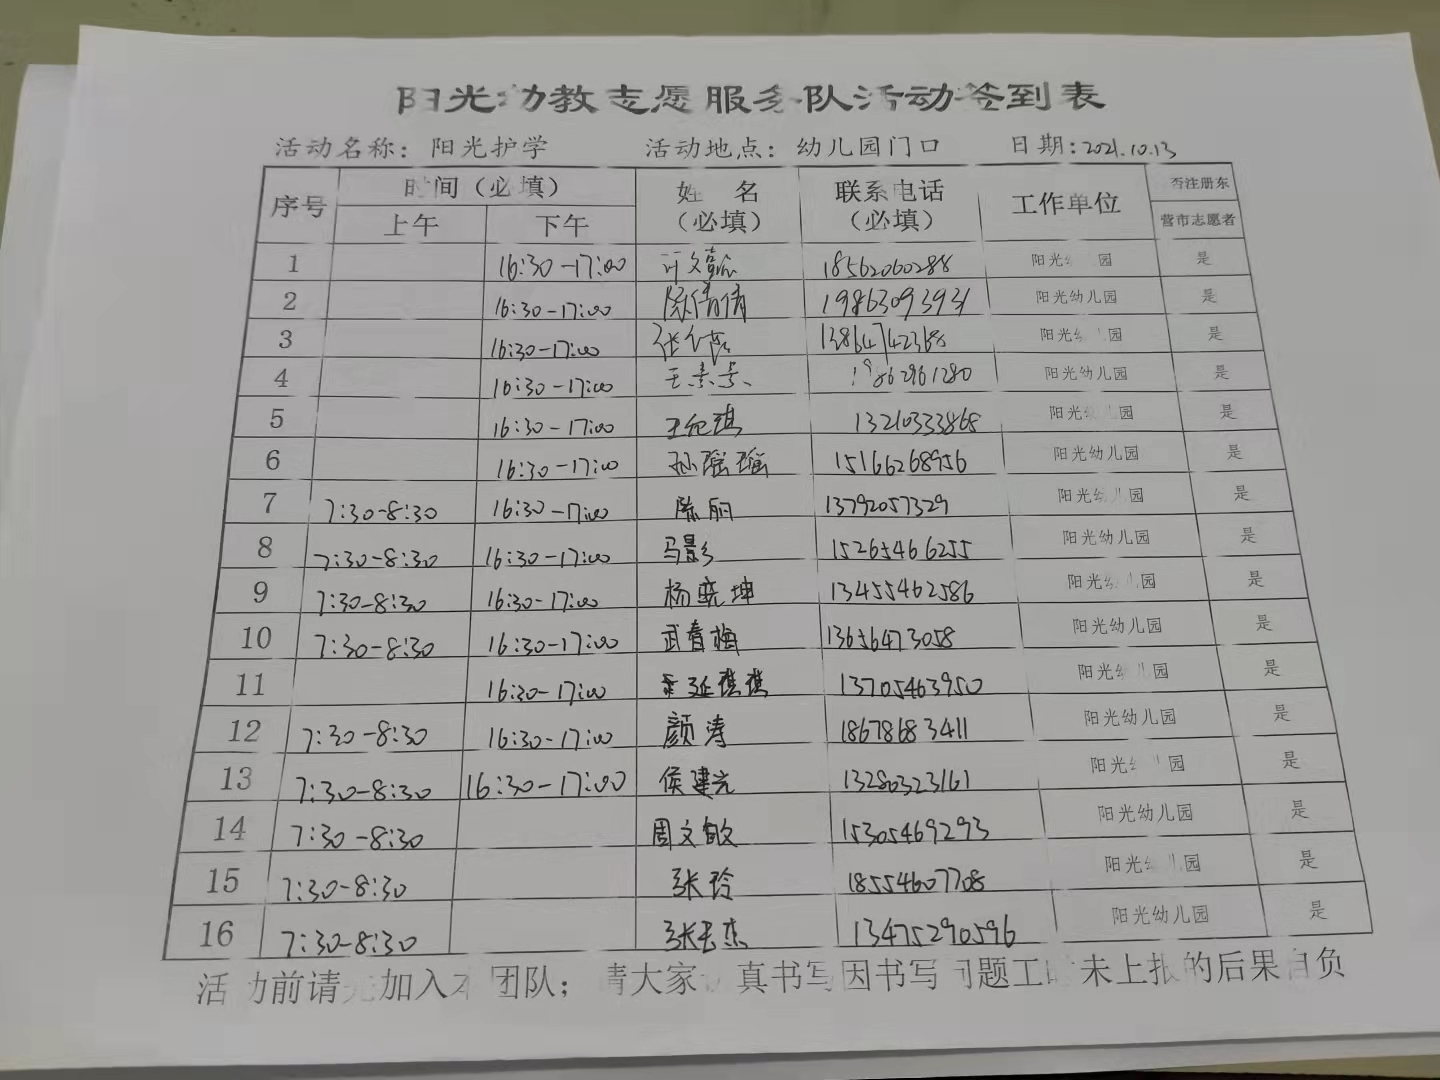 阳光幼教志愿服务队活动签到表
活动名称：阳光护学 活动地点：幼儿园门口 日期：2021.10.13
序号 时间（必填） 姓名（必填） 联系电话（必填） 工作单位 否注册东营市志愿者
上午 下午
1 16:30-17:00 18562060288 阳光 园 是
2 16:30-17:00 陈倩倩 19863093931 阳光幼儿园 是
3 16:30-17:00 13864742368 阳光幼儿园 是
4 16:30-17:00 19862961280 阳光幼儿园 是
5 16:30-17:00 13210333868 阳光幼儿园 是
6 16:30-17:00 孙瑶瑶 15166268956 阳光幼儿园 是
7 7:30-8:30 16:30-17:00 陈丽 13792057329 阳光幼儿园 是
8 7:30-8:30 16:30-17:00 马影 15265466255 阳光幼儿园 是
9 7:30-8:30 16:30-17:00 杨晓坤 13455462586 阳光幼儿园 是
10 7:30-8:30 16:30-17:00 武春梅 13656473058 阳光幼儿园 是
11 16:30-17:00 13705463950 阳光幼儿园 是
12 7:30-8:30 16:30-17:00 颜涛 18678683411 阳光幼儿园 是
13 7:30-8:30 16:30-17:00 侯建光 13280323161 阳光幼儿园 是
14 7:30-8:30 周文敏 15305469293 阳光幼儿园 是
15 7:30-8:30 张玲 18554607708 阳光幼儿园 是
16 7:30-8:30 13475290596 阳光幼儿园 是
活动前请先加入本团队；请大家认真书写因书写问题工时未上报的后果自负